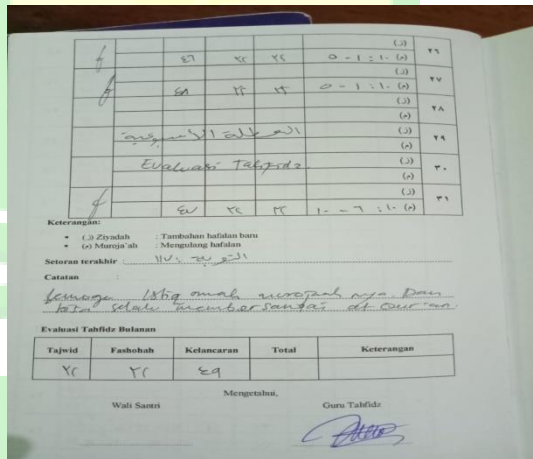 (ز)
٢٦
٤٦ ٢٢ ٢٤ ١٠ : ١ - ٥ (م)
(ز)
٢٧
٤٨ ٢٣ ٢٣ ١٠ : ١ - ٥ (م)
(ز)
٢٨
(م)
العطلة الأسبوعية (ز)
٢٩
(م)
Evaluasi Tahfidz (ز)
٣٠
(م)
(ز)
٣١
٤٧ ٢٤ ٢٣ ١٠ : ٦ - ١٠ (م)
Keterangan:
• (ز) Ziyadah : Tambahan hafalan baru
• (م) Muroja'ah : Mengulang hafalan
Setoran terakhir : التوبة :
Catatan :
Semoga istiqomah murojaah nya. Dan
bisa selalu membersamai al Qur'an.
Evaluasi Tahfidz Bulanan
Tajwid Fashohah Kelancaran Total Keterangan
٤٩
Mengetahui,
Wali Santri Guru Tahfidz